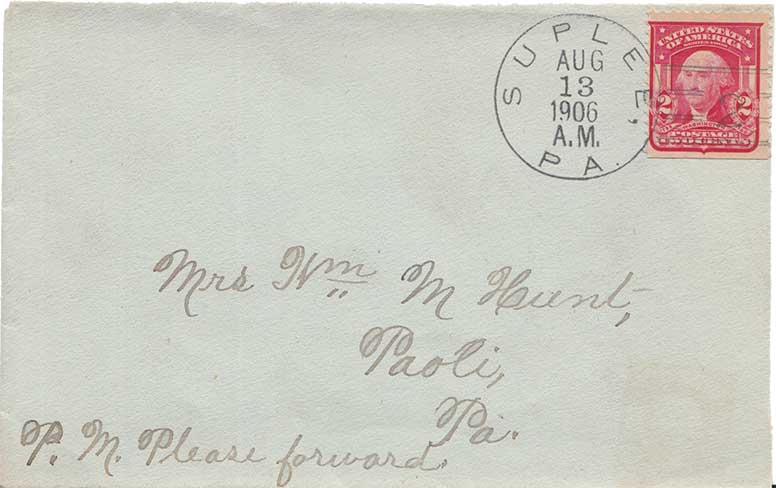 SUPLEE, PA.
AUG
13
1906
A.M.
UNITED STATES
OF AMERICA
2 2
WASHINGTON
POSTAGE
TWO CENTS
Mrs Wm M Hunt,
Paoli,
Pa.
P. M. Please forward.